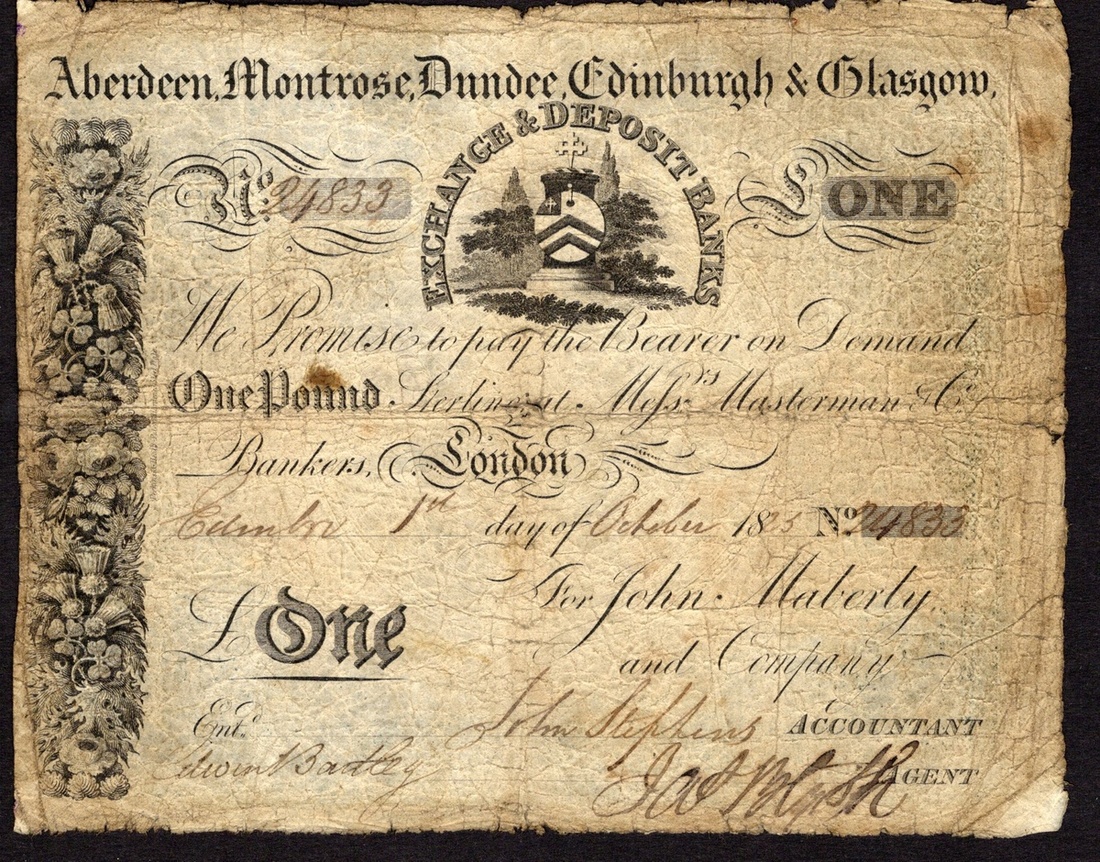 Aberdeen, Montrose, Dundee, Edinburgh & Glasgow,
EXCHANGE & DEPOSIT BANKS
No. 24833
£ ONE
We Promise to pay the Bearer on Demand
One Pound Sterling at Messrs. Masterman & Co.
Bankers, London
Edinbr 1st day of October 1825 No. 24833
For John Maberly
£ One
and Company
Entd.
John Stephens ACCOUNTANT
Edwin Bartley
AGENT